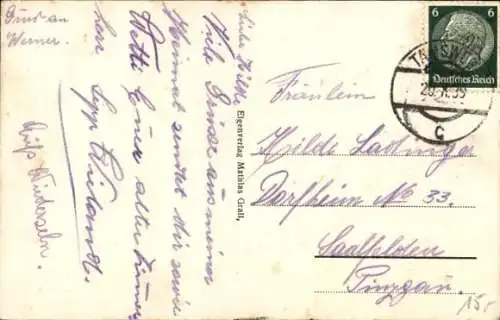 Gruß an
Werner.
Liebe Hilde
Viele Grüsse aus meiner
Heimat sendet Dir sowie
Betti Euer alter
Sepp
Auf's Wiedersehn.
Eigenverlag Mathias Grall,
6
Deutsches Reich
C
Fräulein
Hilde Ladinger
Dorfheim No 33.
Saalfelden
Pinzgau.
15.-